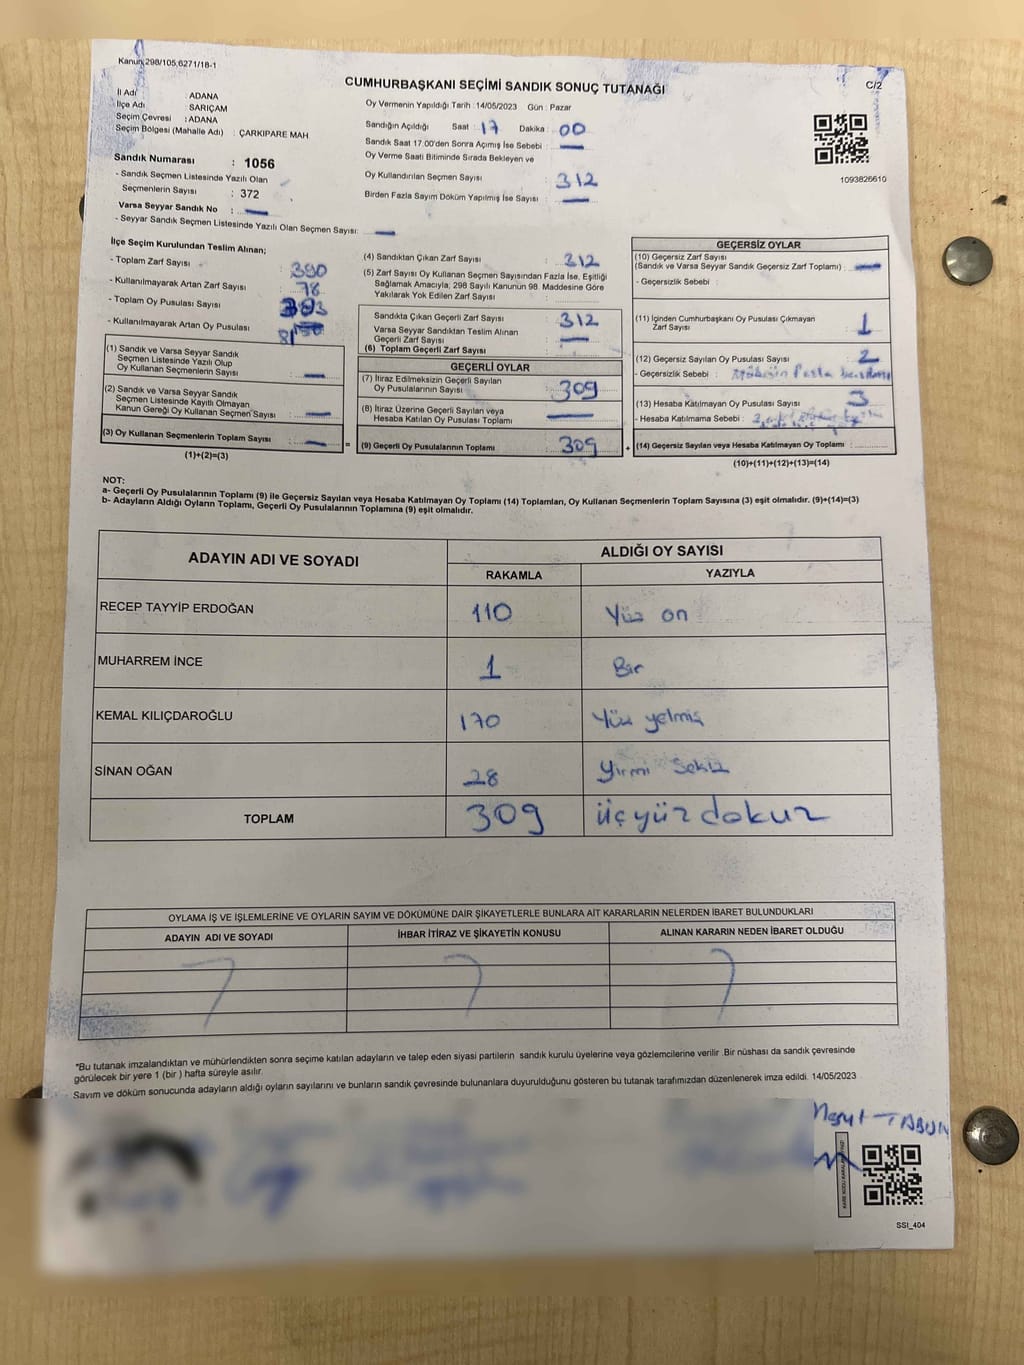 Kanun 298/105,6271/18-1
CUMHURBAŞKANI SEÇİMİ SANDIK SONUÇ TUTANAĞI
C/2
İl Adı : ADANA
İlçe Adı : SARIÇAM
Seçim Çevresi : ADANA
Seçim Bölgesi (Mahalle Adı) : ÇARKIPARE MAH
Oy Vermenin Yapıldığı Tarih : 14/05/2023 Gün : Pazar
Sandığın Açıldığı Saat : 17 Dakika : 00
Sandık Saat 17.00'den Sonra Açımış İse Sebebi : —
Oy Verme Saati Bitiminde Sırada Bekleyen ve
Oy Kullandırılan Seçmen Sayısı : 312
Birden Fazla Sayım Döküm Yapılmış İse Sayısı : —
1093826610
Sandık Numarası : 1056
- Sandık Seçmen Listesinde Yazılı Olan
Seçmenlerin Sayısı : 372
Varsa Seyyar Sandık No : —
- Seyyar Sandık Seçmen Listesinde Yazılı Olan Seçmen Sayısı: —
İlçe Seçim Kurulundan Teslim Alınan;
- Toplam Zarf Sayısı : 390
- Kullanılmayarak Artan Zarf Sayısı : 78
- Toplam Oy Pusulası Sayısı :
- Kullanılmayarak Artan Oy Pusulası :
(1) Sandık ve Varsa Seyyar Sandık
Seçmen Listesinde Yazılı Olup
Oy Kullanan Seçmenlerin Sayısı : —
(2) Sandık ve Varsa Seyyar Sandık
Seçmen Listesinde Kayıtlı Olmayan
Kanun Gereği Oy Kullanan Seçmen Sayısı : —
(3) Oy Kullanan Seçmenlerin Toplam Sayısı : — =
(1)+(2)=(3)
(4) Sandıktan Çıkan Zarf Sayısı : 312
(5) Zarf Sayısı Oy Kullanan Seçmen Sayısından Fazla İse, Eşitliği
Sağlamak Amacıyla, 298 Sayılı Kanunun 98. Maddesine Göre
Yakılarak Yok Edilen Zarf Sayısı :
Sandıkta Çıkan Geçerli Zarf Sayısı : 312
Varsa Seyyar Sandıktan Teslim Alınan
Geçerli Zarf Sayısı : —
(6) Toplam Geçerli Zarf Sayısı :
GEÇERLİ OYLAR
(7) İtiraz Edilmeksizin Geçerli Sayılan
Oy Pusulalarının Sayısı : 309
(8) İtiraz Üzerine Geçerli Sayılan veya
Hesaba Katılan Oy Pusulası Toplamı : —
(9) Geçerli Oy Pusulalarının Toplamı : 309 +
GEÇERSİZ OYLAR
(10) Geçersiz Zarf Sayısı
(Sandık ve Varsa Seyyar Sandık Geçersiz Zarf Toplamı) : —
- Geçersizlik Sebebi :
(11) İçinden Cumhurbaşkanı Oy Pusulası Çıkmayan
Zarf Sayısı : 1
(12) Geçersiz Sayılan Oy Pusulası Sayısı : 2
- Geçersizlik Sebebi :
(13) Hesaba Katılmayan Oy Pusulası Sayısı : 3
- Hesaba Katılmama Sebebi :
(14) Geçersiz Sayılan veya Hesaba Katılmayan Oy Toplamı :
(10)+(11)+(12)+(13)=(14)
NOT:
a- Geçerli Oy Pusulalarının Toplamı (9) ile Geçersiz Sayılan veya Hesaba Katılmayan Oy Toplamı (14) Toplamları, Oy Kullanan Seçmenlerin Toplam Sayısına (3) eşit olmalıdır. (9)+(14)=(3)
b- Adayların Aldığı Oyların Toplamı, Geçerli Oy Pusulalarının Toplamına (9) eşit olmalıdır.
ADAYIN ADI VE SOYADI
ALDIĞI OY SAYISI
RAKAMLA
YAZIYLA
RECEP TAYYİP ERDOĞAN 110 Yüz on
MUHARREM İNCE 1 Bir
KEMAL KILIÇDAROĞLU 170 Yüz yetmiş
SİNAN OĞAN 28 Yirmi Sekiz
TOPLAM 309 üçyüzdokuz
OYLAMA İŞ VE İŞLEMLERİNE VE OYLARIN SAYIM VE DÖKÜMÜNE DAİR ŞİKAYETLERLE BUNLARA AİT KARARLARIN NELERDEN İBARET BULUNDUKLARI
ADAYIN ADI VE SOYADI
İHBAR İTİRAZ VE ŞİKAYETİN KONUSU
ALINAN KARARIN NEDEN İBARET OLDUĞU
*Bu tutanak imzalandıktan ve mühürlendikten sonra seçime katılan adayların ve talep eden siyasi partilerin sandık kurulu üyelerine veya gözlemcilerine verilir .Bir nüshası da sandık çevresinde
görülecek bir yere 1 (bir ) hafta süreyle asılır.
Sayım ve döküm sonucunda adayların aldığı oyların sayılarını ve bunların sandık çevresinde bulunanlara duyurulduğunu gösteren bu tutanak tarafımızdan düzenlenerek imza edildi. 14/05/2023
SSI_404